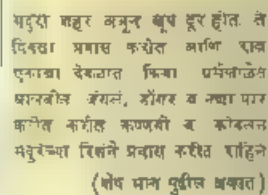 मदुरा शहर अजून खूप दूर होतं. ते
दिवसा प्रवास करीत आणि रात्र
एकाद्या देवळात किंवा धर्मशाळेत
घालवीत जंगलं, डोंगर व नद्या पार
करीत करीत कण्णगी व कोवलन
मदुरेच्या दिशेने प्रवास करीत राहिले
(शेष भाग पुढील अंकात)